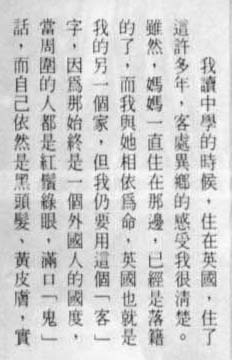 我讀中學的時候，住在英國，住了
這許多年，客處異鄉的感受我很清楚。
雖然，媽媽一直住在那邊，已經是落籍
的了，而我與她相依爲命，英國也就是
我的另一個家，但我仍要用這個「客」
字，因爲那始終是一個外國人的國度，
當周圍的人都是紅鬚綠眼，滿口「鬼」
話，而自己依然是黑頭髮、黃皮膚，實